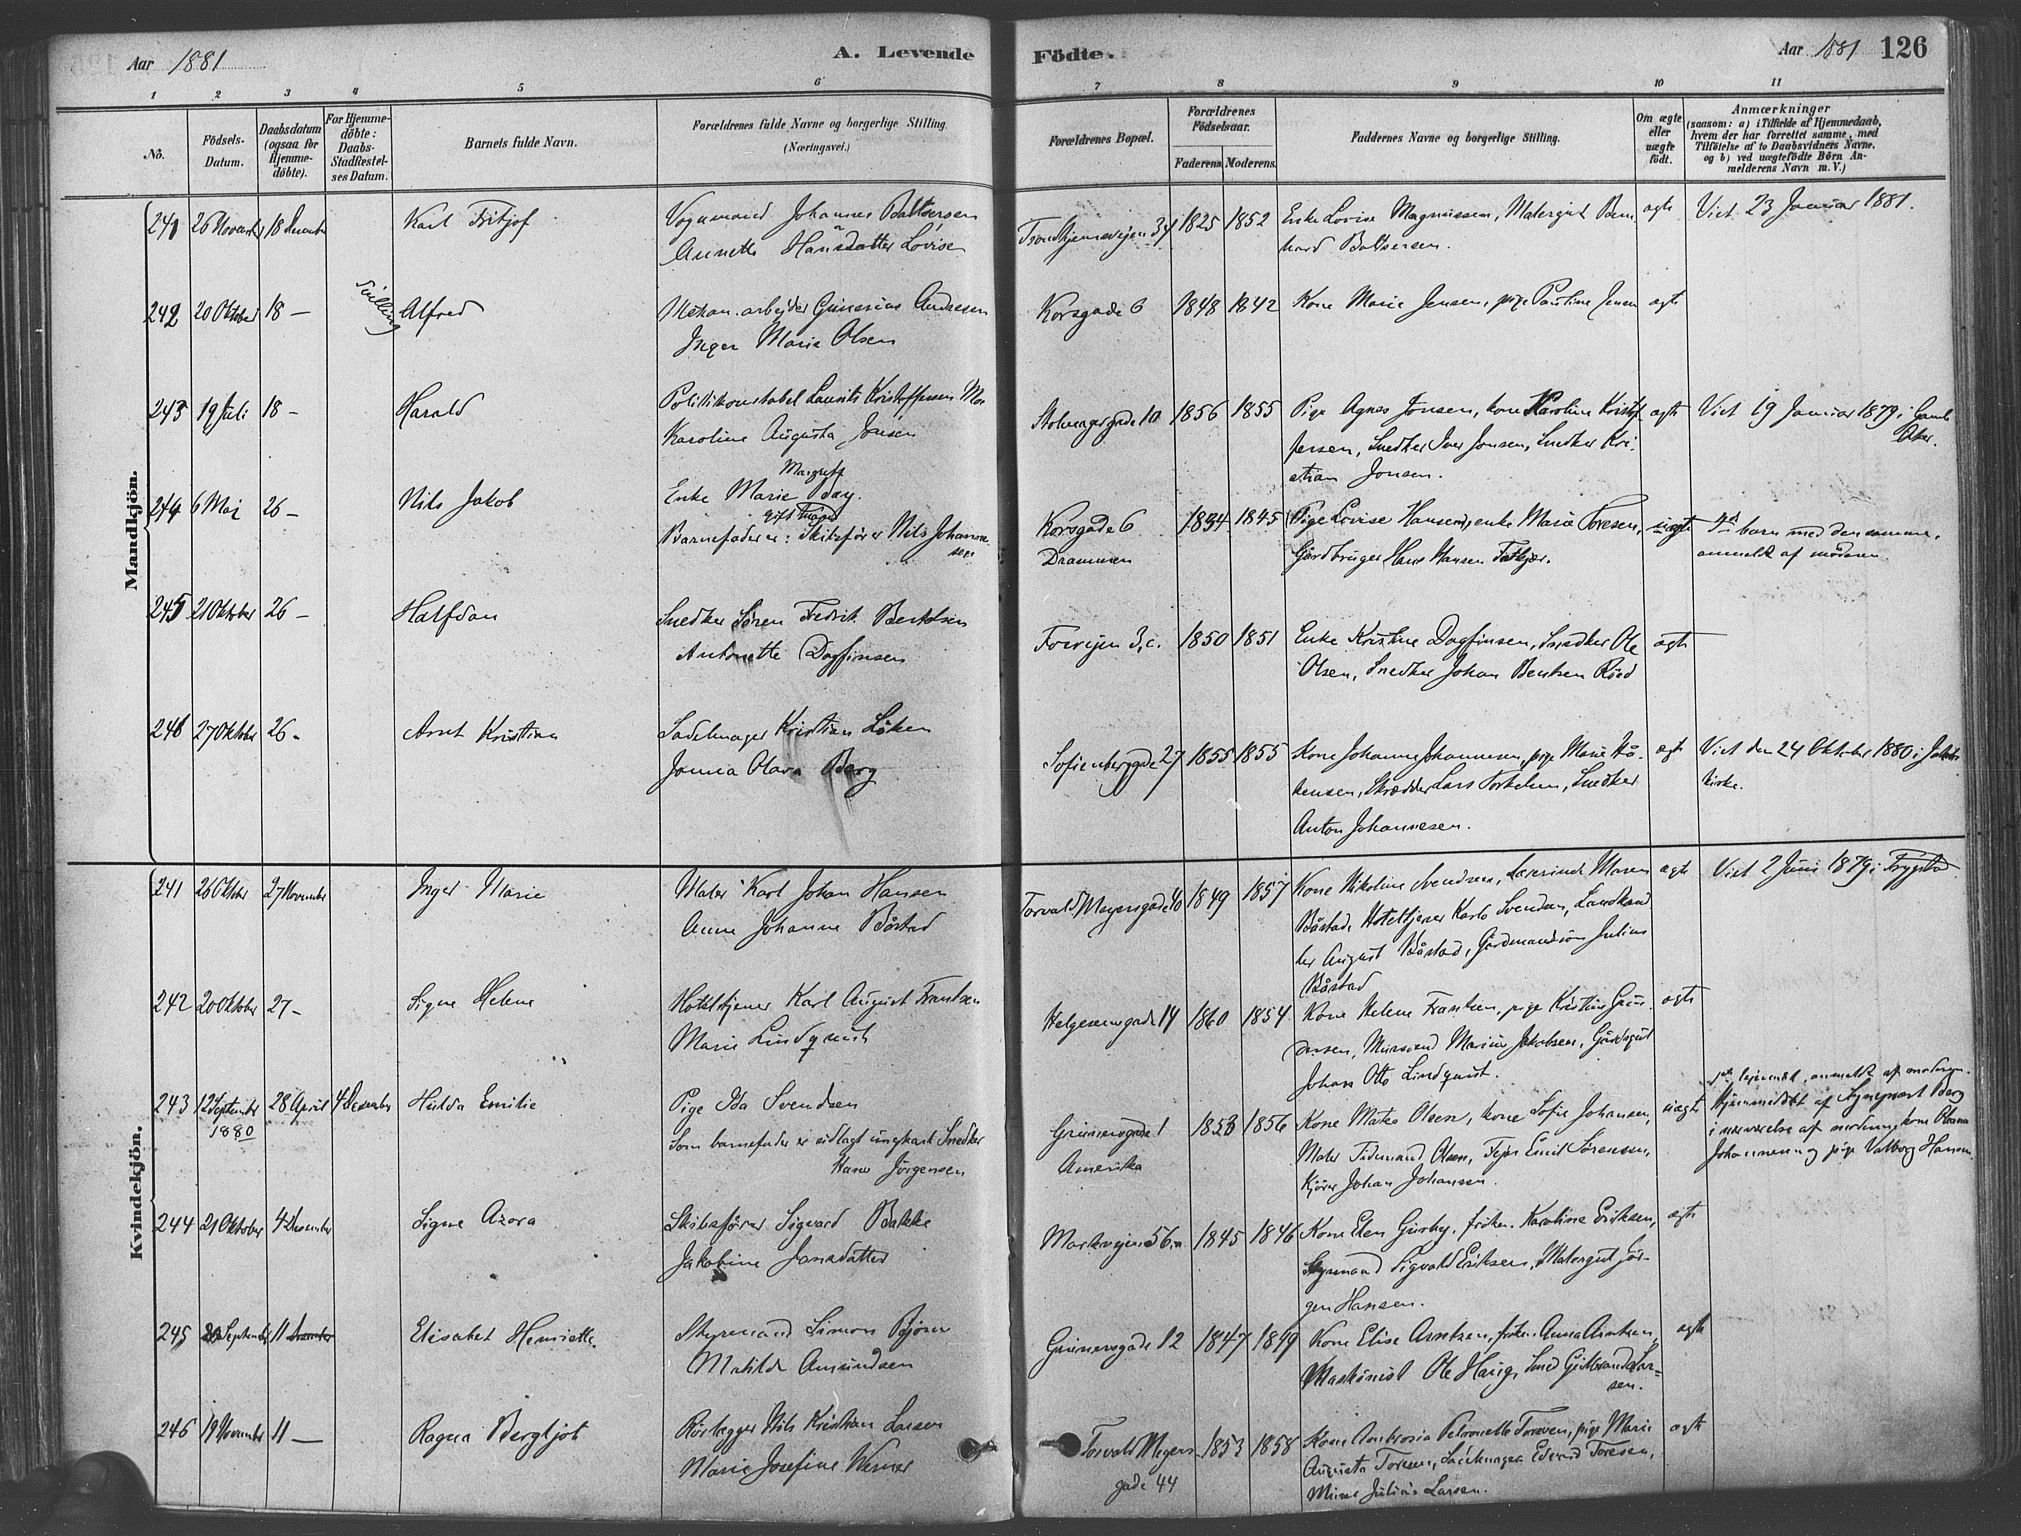 Aar 1881
A. Levende
Födte.
Aar 1881 126
1 2 3 4 5 6 7 8 9 10 11
No.
Födsels-
Datum.
Daabsdatum
(ogsaa for
Hjemme-
döbte).
For Hjemme-
döbte:
Daabs-
Stadfæstel-
ses Datum.
Barnets fulde Navn.
Forældrenes fulde Navne og borgerlige Stilling.
(Næringsvei.)
Forældrenes Bopæl.
Forældrenes
Födselsaar.
Faderens. Moderens.
Faddernes Navne og borgerlige Stilling.
Om ægte
eller
uægte
födt.
Anmærkninger
(saasom: a) i Tilfælde af Hjemmedaab,
hvem der har forrettet samme, med
Tilföielse af to Daabsvidners Navne,
og b) ved uægtefödte Börn An-
melderens Navn m. V.)
Mandkjön.
241 26 November 18 December Karl Fritjof Vognmand Johannes Baltsersen
Annette Hansdatter Lovise
Trondhjemsvejen 34 1825 1852 Enke Lovise Magnussen, Malergut Bern
hard Baltsersen. ægte Viet 23 Januar 1881.
242 20 Oktober 18 — Tvilling Alfred Mekan. arbejder Gunerius Andresen
Inger Marie Olsen
Korsgade 6 1848 1842 Kone Marie Jensen, pige Pauline Jensen ægte
243 19 Juli 18 — Harald Politikonstabel Laurits Kristoffersen Moe
Karoline Augusta Jonsen
10 1856 1855 Pige Agnes Jonsen, kone Karoline Kristof
fersen, Snedker Iver Jonsen, Snedker Kri-
stian Jonsen. ægte Viet 19 Januar 1879 i Gamle
Aker.
244 6 Mai 26 — Nils Jakob Enke Marie Margrete Day.
gift
Barnefader er: Skibsfører Nils Johanne-
sen
Korsgade 6
Drammen 1834 1845 Pige Lovise Hansen, enke Marie Toresen,
Gårdbruger Hans Hansen uægte barn med den samme,
anmeldt af moderen.
245 21 Oktober 26 — Halfdan Snedker Søren Fredrik Bentsen
Antonette Dagfinsen
Fossvejen 3, c. 1850 1851 Enke Kristine Dagfinsen, Snedker Ole
Olsen, Snedker Johan Bentsen Röed ægte
246 27 Oktober 26 - Arnt Kristian Sadelmager Kristian Løken
Jonna Olava Berg
Sofienberggade 27 1855 1855 Kone Johanne Johannesen, pige Marie Hå-
kensen, Skrædder Lars Torkelsen, Snedker
Anton Johannesen. ægte Viet den 24 Oktober 1880 i Jakobs
kirke.
Kvindekjön.
241 26 Oktber 27 November Inger Marie Maler Karl Johan Hansen
Anne Johanne Båstad
Torvald Meyersgade 40 1849 1857 Kone Nikoline Svendsen, Lærerinde Maren
Båstad, Hoteltjener Karl Svendsen, Landhand
ler August Båstad, Gårdmandssön Julius
Båstad ægte Viet 2 Juni 1879 i Trygstad
242 20 Oktober 27 — Signe Helene Hoteltjener Karl August Frantsen
Marie Lindqvist
Helgesensgade 14 1860 1854 Kone Helene Frantsen, pige Kristine Gun
dersen, Murmand Marius Jakobsen, Gårdsgut
Johan Otto Lindqvist. ægte
243 12 September
1880 28 April 4 December Hulda Emilie Pige Ida Svendsen
Som barnefader er udlagt ungkarl Snedker
Hans Jörgensen
Grünersgade 1
Amerika 1853 1856 Kone Matea Olsen, kone Sofie Johansen,
Maler Tidemand Olsen, Emil Sörensen,
Kjörer Johan Johansen uægte anmeldt af moderen.
Hjemmedöbt af Berg
i nærværelse af kone
Johannesen og pige Valborg Hansen
244 21 Oktober 4 December Signe Azora Skibsfører Sigvard Bakke
Jakobine Jansdatter
Markvejen 56, a 1845 1846 Kone Elen Guhby, frøken Karoline Eriksen,
Styrmand Sigvald Eriksen, Malergut Jör-
gen Hansen. ægte
245 September 11 December Elisabet Henriette. Styrmand Simon Björn
Matilde Amundsen
Grünersgade 12 1847 1849 Kone Elise Arntsen, frøken Anna Arntsen,
Maskinist Ole Haug, Smed Gulbrand Lar-
sen. ægte
246 19 November 11 — Ragna Bergljot Rörlægger Nils Kristian Larsen
Marie Josefine Werner
Torvald Meyers
gade 44 1853 1858 Kone Ambrosia Petronelle Toresen, pige Marie
Augusta Toresen, Sadelmager Edvard Toresen,
Julius Larsen. ægte